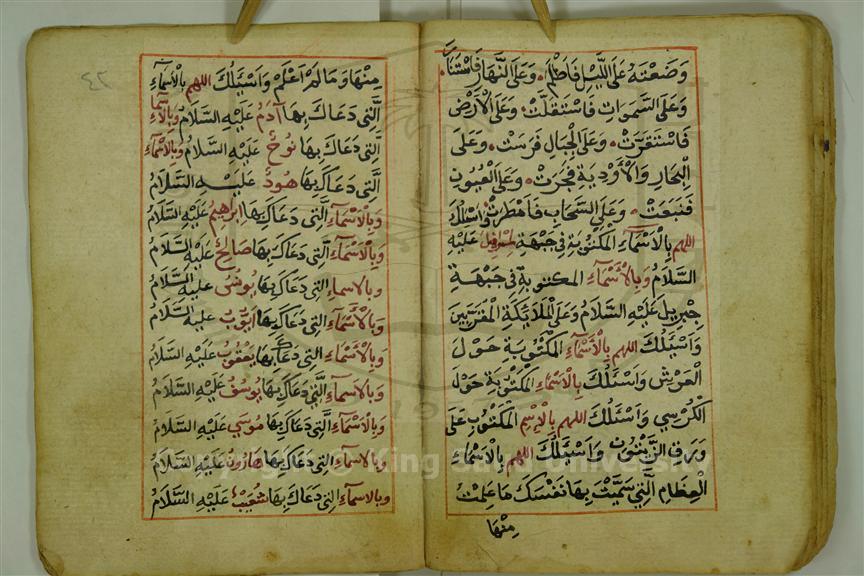 وَضَعْتَهُ عَلَى اللَّيْلِ فَاَظْلَمَ وَعَلَى النَّهَارِ فَاسْتَنَارَ
وَعَلَى السَّمٰوَاتِ فَاسْتَقَلَّتْ وَعَلَى الْاَرْضِ
فَاسْتَقَرَّتْ وَعَلَى الْجِبَالِ فَرَسَتْ وَعَلَى
الْبِحَارِ وَالْاَوْدِيَةِ فَجَرَتْ وَعَلَى الْعُيُونِ
فَنَبَعَتْ وَعَلَى السَّحَابِ فَاَمْطَرَتْ وَاَسْئَلُكَ
اللهم بِالْاَسْمَاءِ الْمَكْتُوبَةِ فِى جَبْهَةِ اِسْرَافِيلَ عَلَيْهِ
السَّلَامُ وَبِالْاَسْمَاءِ المكتوبة فِى جَبْهَةِ
جِبْرِيلَ عَلَيْهِ السَّلَامُ وَعَلَى الْمَلَائِكَةِ الْمُقَرَّبِينَ
وَاَسْئَلُكَ اللهم بِالْاَسْمَاءِ الْمَكْتُوبَةِ حَوْلَ
الْعَرْشِ وَاَسْئَلُكَ بِالْاَسْمَاءِ الْمَكْتُوبَةِ حَوْلَ
الْكُرْسِي وَاَسْئَلُكَ اللهم بِالْاِسْمِ الْمَكْتُوبِ عَلَى
وَرَقِ الزَّيْتُونِ وَاَسْئَلُكَ اللهم بِالْاَسْمَاءِ
الْعِظَامِ الَّتِي سَمَّيْتَ بِهَا نَفْسَكَ مَا عَلِمْتُ
مِنْهَا
٤٢
مِنْهَا وَمَا لَمْ اَعْلَمْ وَاَسْئَلُكَ اللهم بِالْاَسْمَاءِ
الَّتِى دَعَاكَ بِهَا آدَمُ عَلَيْهِ السَّلَامُ وَبِالْاَسْمَاءِ
الَّتِى دَعَاكَ بِهَا نُوحٌ عَلَيْهِ السَّلَامُ وَبِالْاَسْمَاءِ
الَّتِى دَعَاكَ بِهَا هُودٌ عَلَيْهِ السَّلَامُ
وَبِالْاَسْمَاءِ الَّتِى دَعَاكَ بِهَا اِبْرَاهِيمُ عَلَيْهِ السَّلَامُ
وَبِالْاَسْمَاءِ الَّتِى دَعَاكَ بِهَا صَالِحٌ عَلَيْهِ السَّلَامُ
وَبِالاسماء الَّتِى دَعَاكَ بِهَا يُونُسُ عَلَيْهِ السَّلَامُ
وَبِالْاَسْمَاءِ الَّتِى دَعَاكَ بِهَا اَيُّوبُ عَلَيْهِ السَّلَامُ
وَبِالْاَسْمَاءِ الَّتِى دَعَاكَ بِهَا يَعْقُوبُ عَلَيْهِ السَّلَامُ
وَبِالْاَسْمَاءِ الَّتِى دَعَاكَ بِهَا يُوسُفُ عَلَيْهِ السَّلَامُ
وَبِالْاَسْمَاءِ الَّتِى دَعَاكَ بِهَا مُوسَى عَلَيْهِ السَّلَامُ
وَبِالْاَسْمَاءِ الَّتِى دَعَاكَ بِهَا هَارُونُ عَلَيْهِ السَّلَامُ
وَبِالْاَسْمَاءِ الَّتِى دَعَاكَ بِهَا شُعَيْبُ عَلَيْهِ السَّلَامُ